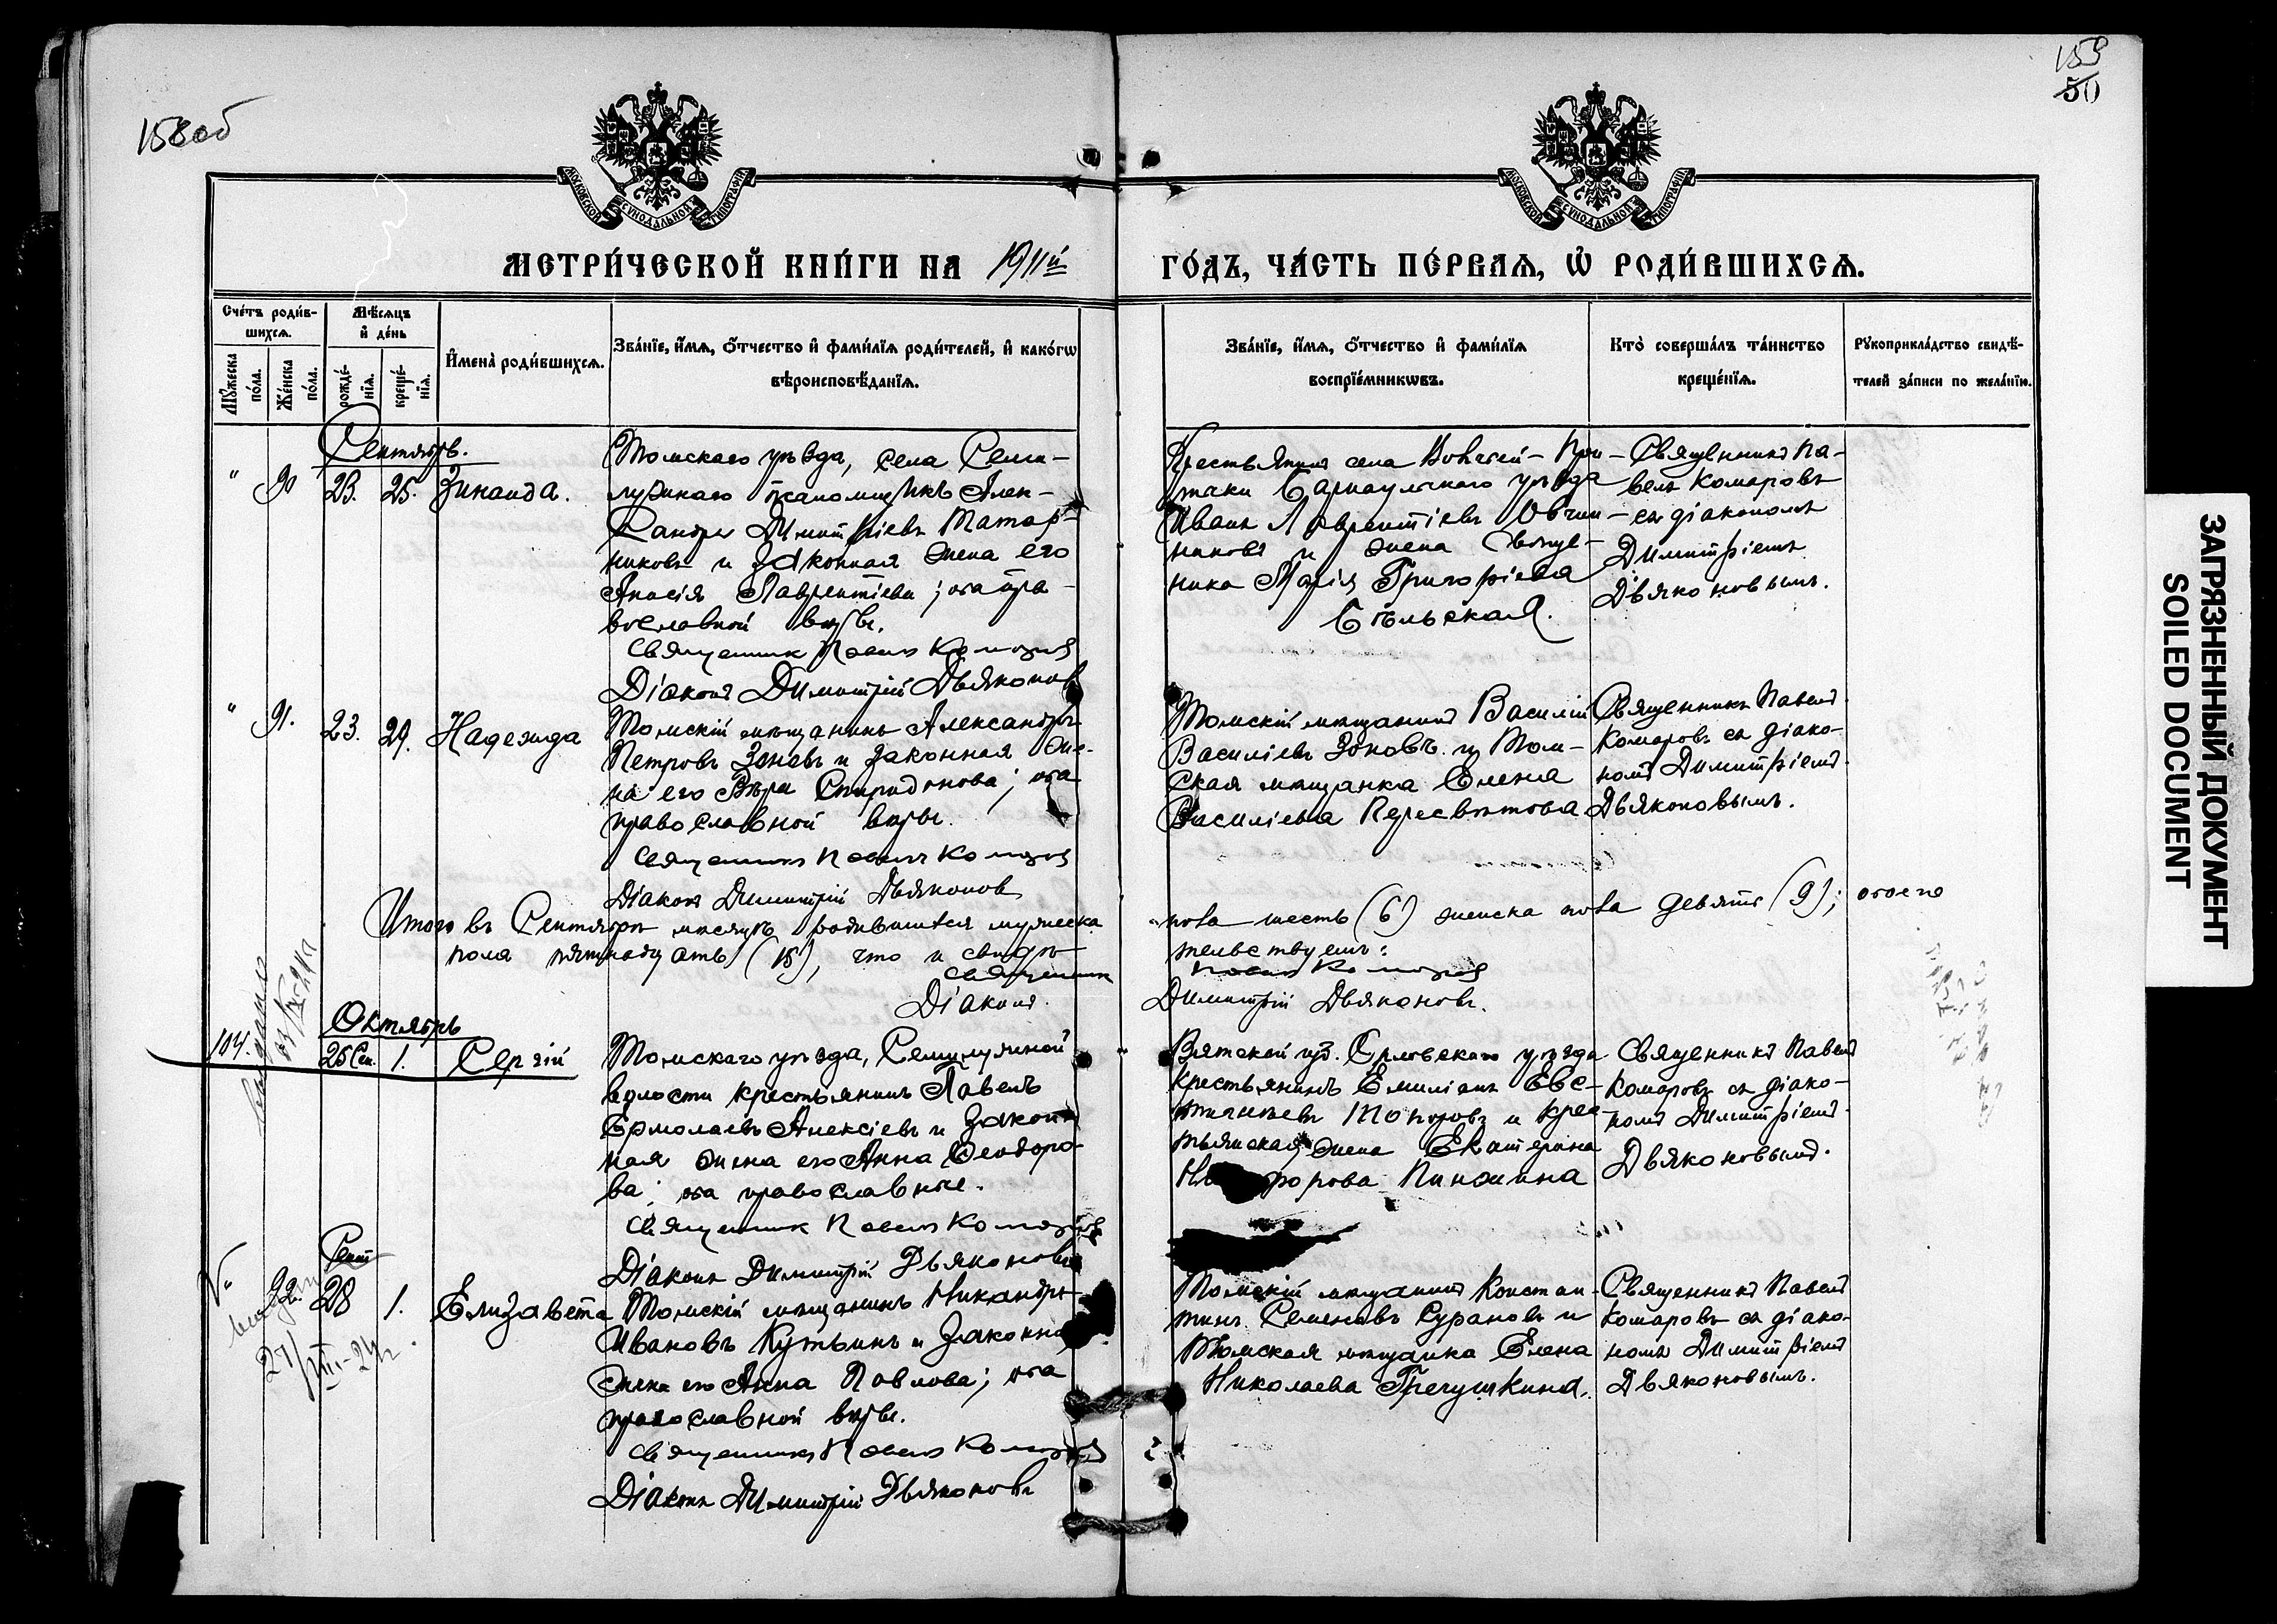 158об
159
50
МОСКОВСКОЙ СѴНОДАЛЬНОЙ ТИПОГРАФІИ
МОСКОВСКОЙ СѴНОДАЛЬНОЙ ТИПОГРАФІИ
МЕТРИ́ЧЕСКОЙ КНИ́ГИ НА 1911й
ГО́ДЪ, ЧА́СТЬ ПЕ́РВАѦ, Ѡ҆ РОДИ́ВШИХСѦ.
Сче́тъ роди́в-
шихсѧ.
Мꙋ́жеска по́ла.
Же́нска по́ла.
Мѣ́сѧцъ
и҆ де́нь
рожде́-
нїѧ.
креще́-
нїѧ.
И҆мена̀ роди́вшихсѧ.
Зва́нїе, и҆́мѧ, ѻ҆́тчество и҆ фами́лїѧ роди́телей, и҆ како́гѡ
вѣроисповѣ́данїѧ.
Зва́нїе, и҆́мѧ, ѻ҆́тчество и҆ фами́лїѧ
воспрїе́мникѡвъ.
Кто̀ соверша́лъ та́инство
креще́нїѧ.
Рꙋкоприкла́дство свидѣ́-
телей за́писи по жела́нїю.
Сентябрь.
" 90 23. 25. Зинаида.
Томскаго уѣзда, села Семи-
лужнаго псаломщикъ Алек-
сандръ Димитріевъ Татар-
никовъ и законная жена его
Анисія Лаврентіева; оба пра-
вославной вѣры.
Священникъ Павелъ Комаровъ
Діаконъ Димитрій Дьяконов
Крестьянинъ села
Барнаульскаго уѣзда
Иванъ Лаврентіевъ Овчин-
никовъ и жена священ-
ника Марія Григоріева
Бѣльская.
Священникъ Па-
велъ Комаровъ
съ діакономъ
Димитріемъ
Дьяконовымъ.
" 91. 23. 29. Надежда
Томскій мѣщанинъ Александръ
Петровъ Зоновъ и законная же-
на его Вѣра Спиридонова; оба
православной вѣры.
Священникъ Павелъ Комаровъ
Діаконъ Димитрій Дьяконов
Томскій мѣщанинъ Василій
Василіевъ Зоновъ и Том-
ская мѣщанка Елена
Василіева Пересвѣтова
Священникъ Павелъ
Комаровъ съ діако-
номъ Димитріемъ
Дьяконовымъ.
Итого въ Сентябрѣ мѣсяцѣ родившихся мужеска
пола шесть (6) женска пола девять (9); обоего
пола пятнадцать (15), что и свидѣ-
тельствуемъ:
Священникъ Павелъ Комаровъ
Діаконъ Димитрій Дьяконовъ.
Октябрь
104. 25 Сен. 1. Сергій
Томскаго уѣзда, Семилужной
волости крестьянинъ Павелъ
Ермолаевъ Алексіевъ и закон-
ная жена его Анна Ѳеодоро-
ва; оба православные.
Священникъ Павелъ Комаровъ
Діаконъ Димитрій Дьяконовъ
Вятской губ. Орловскаго уѣзда
крестьянинъ Емиліанъ Евс-
Топоровъ и крес-
тьянская жена Екатерина
Священникъ Павелъ
Комаровъ съ діако-
номъ Димитріемъ
Дьяконовымъ.
Сент
92. 28 1. Елизавета
Томскій мѣщанинъ Никандръ
Ивановъ Кутьинъ и законная
жена его Анна Павлова; оба
православной вѣры.
Священникъ Павелъ Комаровъ
Діаконъ Димитрій Дьяконовъ
Томскій мѣщанинъ Констан-
тинъ Семеновъ Сурановъ и
Томская мѣщанка Елена
Николаева Гречушкина.
Священникъ Павелъ
Комаровъ съ діако-
номъ Димитріемъ
Дьяконовымъ.
ЗАГРЯЗНЕННЫЙ ДОКУМЕНТ
SOILED DOCUMENT